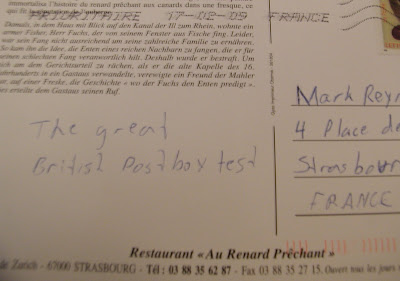 immortalisa l'histoire du renard prêchant aux canards dans une fresque, ce
PRIORITAIRE 17-02-09 FRANCE
Damals, in dem Haus mit Blick auf den Kanal der Ill zum Rhein, wohnte ein
armer Fisher, Herr Fuchs, der von seinem Fenster aus Fische fing. Leider,
war sein Fang nicht ausreichend um seine zahlreiche Familie zu ernähren.
So kam ihn die Idee, die Enten eines reichen Nachbaren zu fangen, die er für
seinen schlechten Fang verantwortlich hilt. Deshalb wurde er bestraft. Um
sich am dem Gerichtsurteil zu rächen, als er die alte Kapelle des 16.
Jahrhunderts in ein Gastaus verwandelte, verewigte ein Freund der Mahler
war, auf einer Freske, die Geschichte « wo der Fuchs den Enten predigt ».
Dies erteilte dem Gastaus seinen Ruf.
The great
British Postbox test
Mark Rey
4 Place de
Strasbour
FRANCE
Restaurant « Au Renard Prêchant »
de Zurich - 67000 STRASBOURG - Tél : 03 88 35 62 87 - Fax 03 88 35 27 15. Ouvert tous les jours